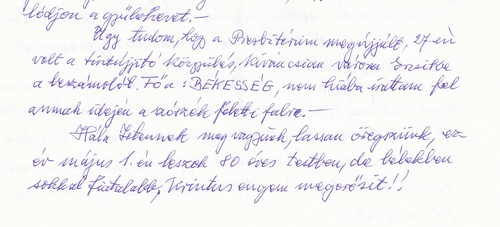 lódjon a gyülekezet.–
Úgy tudom, hogy a Presbitérium megújjult, 27-én
volt a tisztújító közgyűlés, kiváncsian várom Erzsitől
a beszámolót. Fő a: BÉKESSÉG, nem hiába írattam fel
annak idején a szószék feletti falra.–
Hála Istennek megvagyunk, lassan öregszünk, ez
év május 1.-én leszek 80 éves testben, de lélekben
sokkal fiatalabb, Krisztus engem megerősít!!